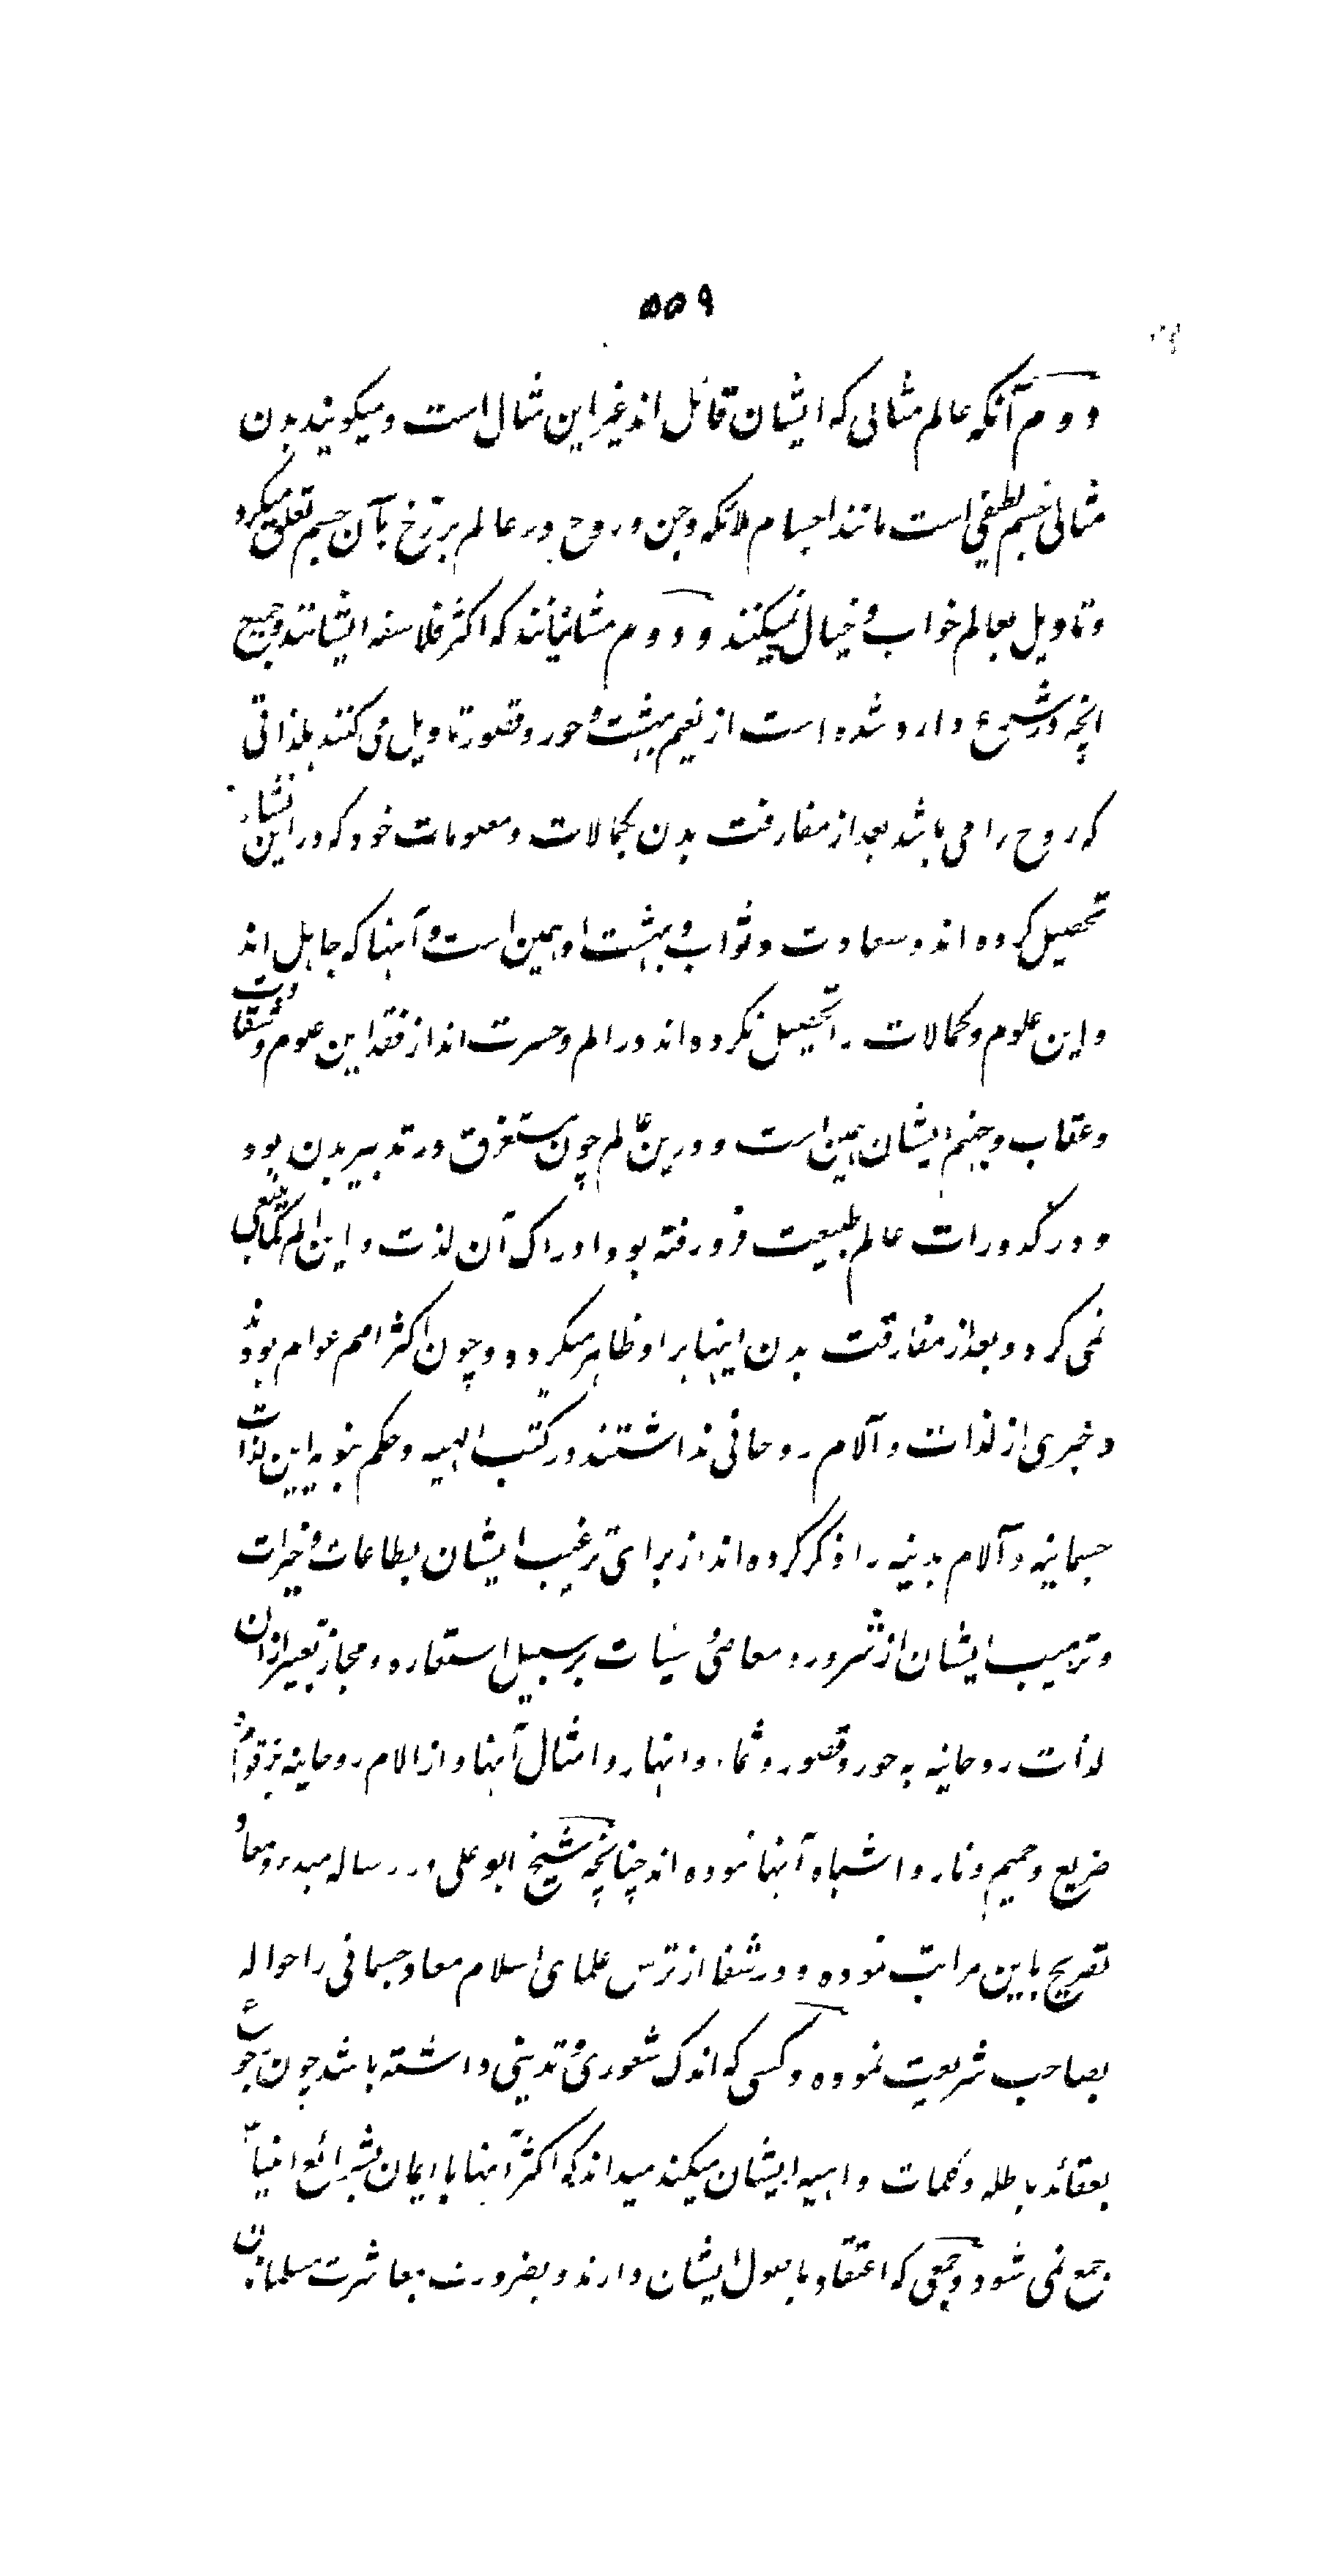 ۵۵۹
دوم آنکه عالم مثالی که ایشان قائل اند غیر این مثال است و میکویند بدن
مثالی جسم لطیفی است مانند اجسام ملائکه و جن و روح در عالم برزخ بآن جسم تعلق میکرد
و تاویل بعالم خواب و خیال نمیکنند و دوم مشائیانند که اکثر فلاسفه ایشانند و جمیع
انچه در شرع وارد شده است از نعیم بهشت و حور و قصور تاویل می کنند بلذاتی
که روح را می باشد بعد از مفارقت بدن بکمالات و معلومات خود که در این نشاء
تحصیل کرده اند و سعادت و ثواب و بهشت او همین است و آنها که جاهل اند
و این علوم و کمالات را تحصیل نکرده اند در الم و حسرت اند از فقد این علوم و شقاوت
و عقاب و جهنم ایشان همین است و درین عالم چون مستغرق در تدبیر بدن بود
و در کدورات عالم طبیعت فرو رفته بود ادراک آن لذت و این الم کماینبغی
نمی کرد و بعد از مفارقت بدن اینها بر او ظاهر میکردد و چون اکثر امم عوام بودند
و خبری از لذات و آلام روحانی نداشتند در کتب الهیه و حکم نبویه این لذات
جسمانیه و آلام بدنیه را ذکر کرده اند از برای ترغیب ایشان بطاعات و خیرات
و ترهیب ایشان از شرور و معاصی و سیئات بر سبیل استعاره و مجاز تعبیر از ان
لذات روحانیه به حور و قصور و ثمار و انهار و امثال آنها و از الام روحانیه بزقوم و
ضریع و حمیم و نار و اشباه آنها نموده اند چنانچه شیخ ابو علی در رساله مبدء و معاد
تصریح باین مراتب نموده و در شفا از ترس علمای اسلام معاد جسمانی را حواله
بصاحب شریعت نموده و کسی که اندک شعوری و تدینی داشته باشد چون رجوع
بعقائد باطله و کلمات واهیه ایشان میکند میداند که اکثر آنها با ایمان بشرائع انبیاء
جمع نمی شود و جمعی که اعتقاد باصول ایشان دارند و بضرورت معاشرت مسلمانان